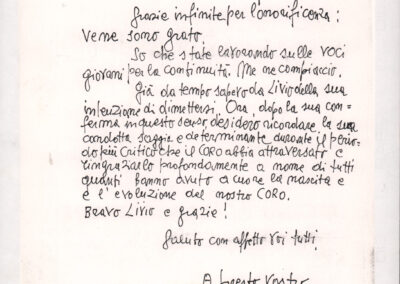 Grazie infinite per l'onorificenza:
Ve ne sono grato.
So che state lavorando sulle voci
giovani per la continuità. Me ne compiaccio.
Già da tempo sapevo da Livio della sua
intenzione di dimettersi. Ora, dopo la sua con-
ferma in questo senso, desidero ricordare la sua
condotta saggia e determinante durante il perio-
do più critico che il CORO abbia attraversato e
ringraziarlo profondamente a nome di tutti
quanti hanno avuto a cuore la nascita e
e l'evoluzione del nostro CORO.
Bravo Livio e grazie!
Saluto con affetto voi tutti.
vostro